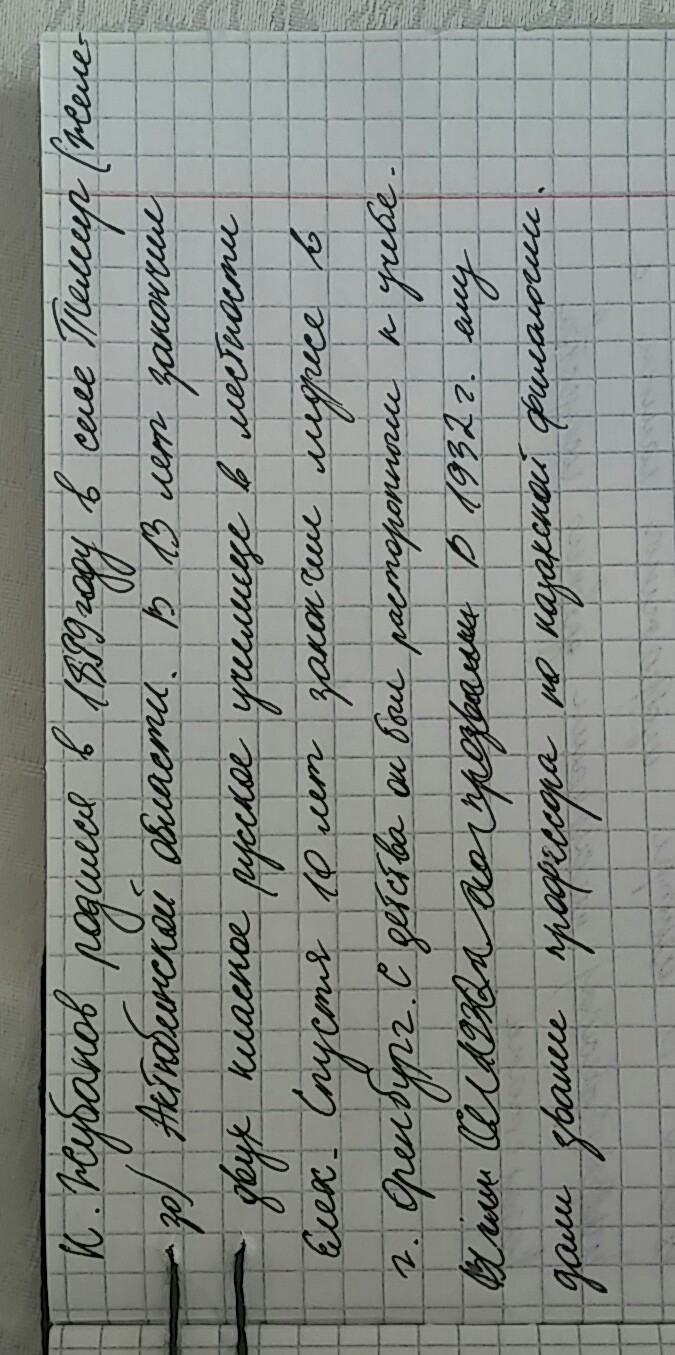 К. Жубанов родился в 1899 году в селе Темир (желе-
зо) Актюбинской области. В 13 лет закончил
двух класное русское училище в местности
Елек. Спустя 10 лет закончил медресе в
г. Оренбург. С детства он был расторопным к учебе.
прозвали В 1932 г. ему
дали звание профессора по казахской филологии.